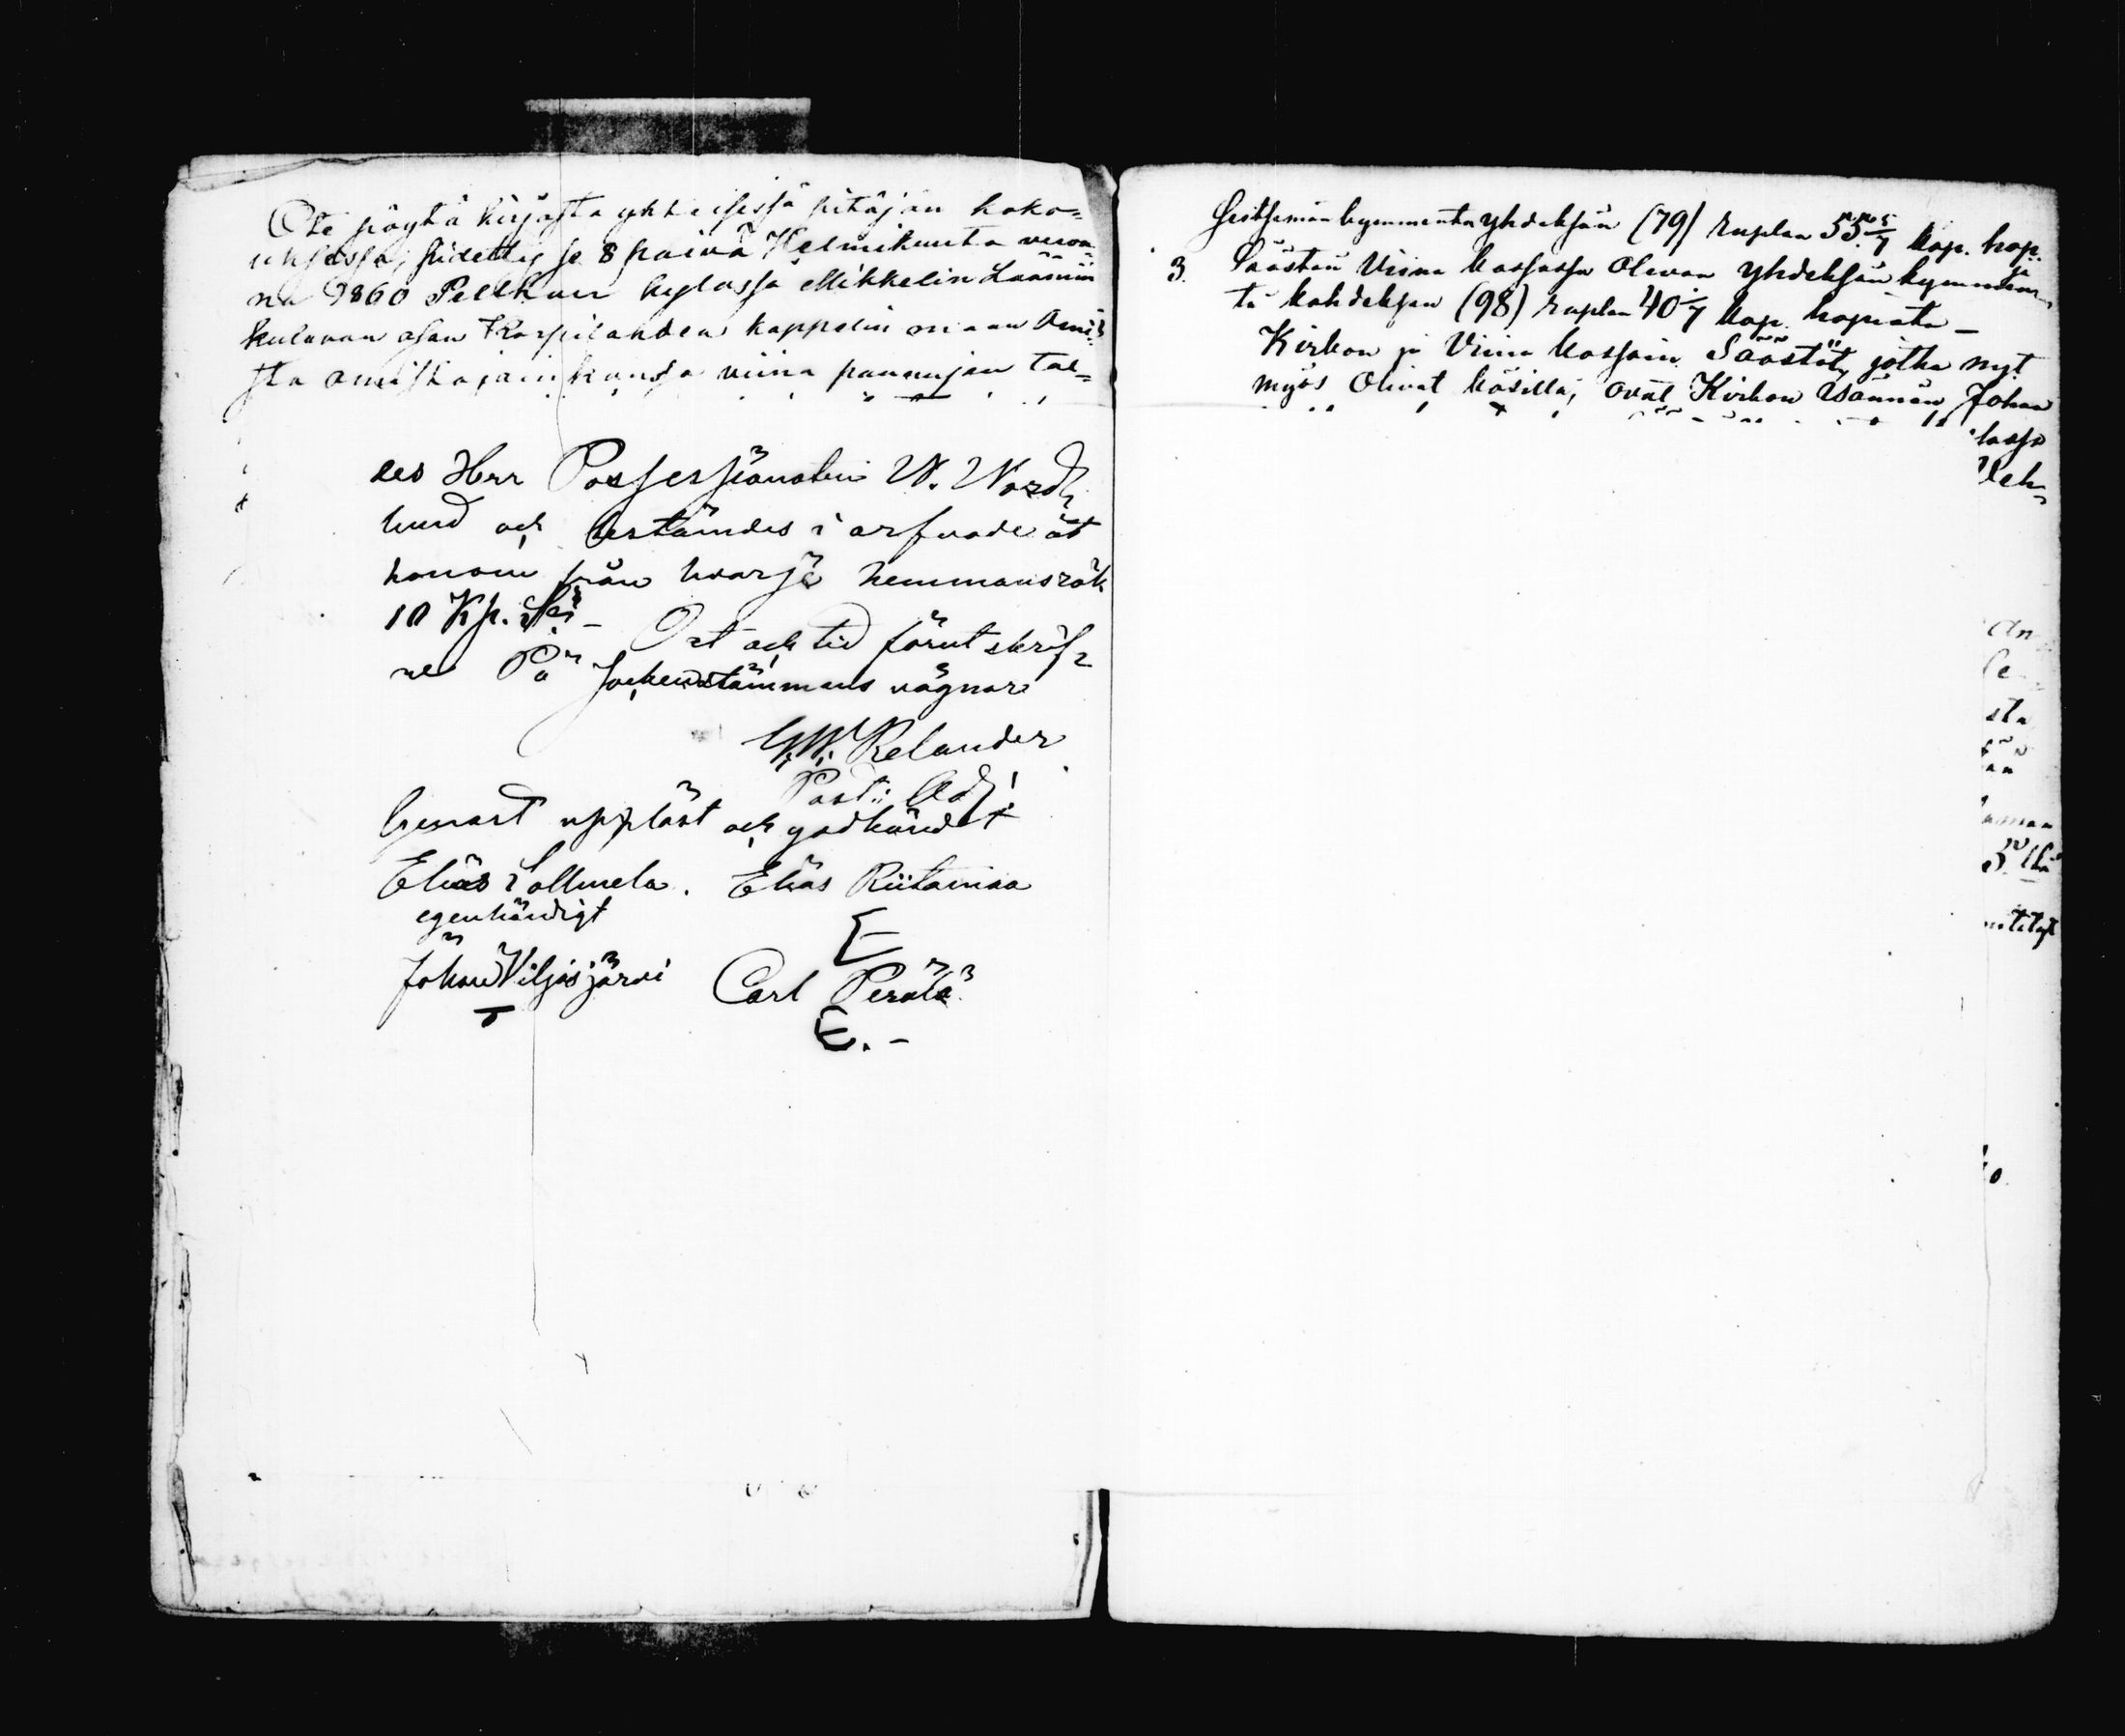 Ote pöytä kirjasta yhteisessä pitäjän koko=
uksessa, pidetty se 8 päivä Helmikuuta vuon=
na 1860 Pellkan kylässä Mikkelin Lääniin
kuluvan osan Korpilahden kappelin maan Omi=
sta omistajain kanssa viina pannujan tal=
des Herr Possessionaten W. Nord=
lund och bestämdes i arfvode åt
honom från hvarje hemmansrök
10 Kp. Sr –
Ort och tid förut skrif=
ne På Sockenstämmans vägnar
G.W. Relander
Past: Adj:
Genast uppläst och godkändt
Elias Sallmela. Elias Riitamaa
egenhändigt
Johan Viljasjärvi Carl Perälä
seitsemänkymmentä yhdeksän (79) ruplaa 55 5/7 kop. hop. ja
3. Säästön Viina kassassa Olevan yhdeksänkymmen=
tä kahdeksan (98) ruplaa 40 /7 kop. hopiata –
Kirkon ja Viina kassain Säästöt, jotka nyt
myös Olivat käsillä, ovat Kirkon Isännän Johan
lassa
leh=
An
le
sta
än
maan